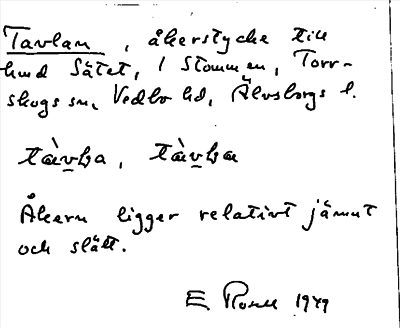 Tavlan, åkerstycke till
hmd Sätet, 1 Stommen, Torr-
skogs sn, Vedbo hd, Älvsborgs l.
tàvḷa, tàvḷa
Åkern ligger relativt jämnt
och slätt.
E. 1949